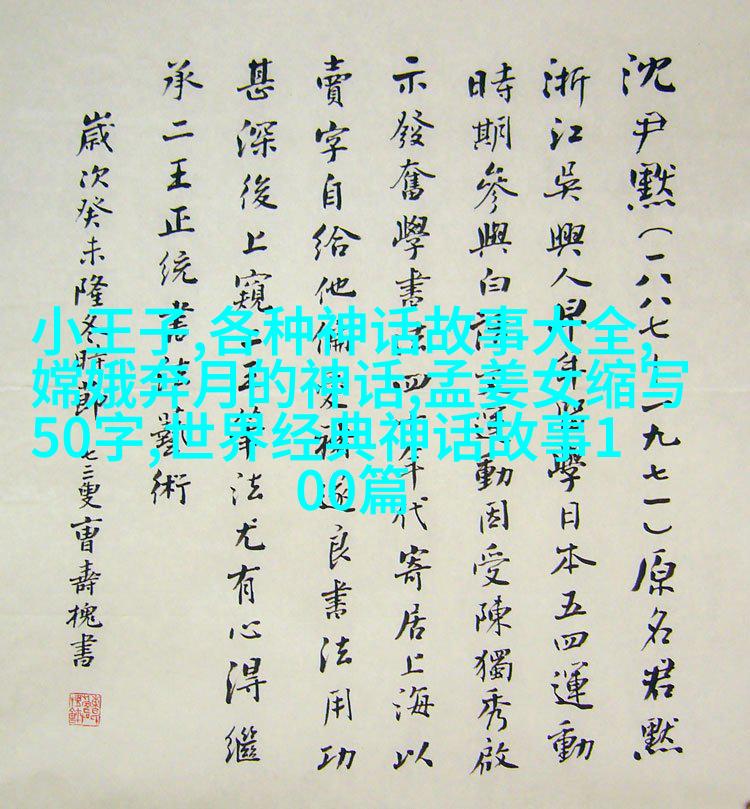 沈尹默(一八八七—一九七一)原名君默
浙江吳興人早年留學日本五四運動
時期參與白話文運動因受陳獨秀啟
示發奮學書法四十年代寄居上海以
賣字自給他褚遂良書法用功
甚深後上窺二王筆法尤有心得繼
承二王正统書法藝術
歲次癸未隆冬時節七三叟曹壽槐書
小王子,各种神话故事大全,
嫦娥奔月的神话,孟姜女缩写
50字,世界经典神话故事1
00篇